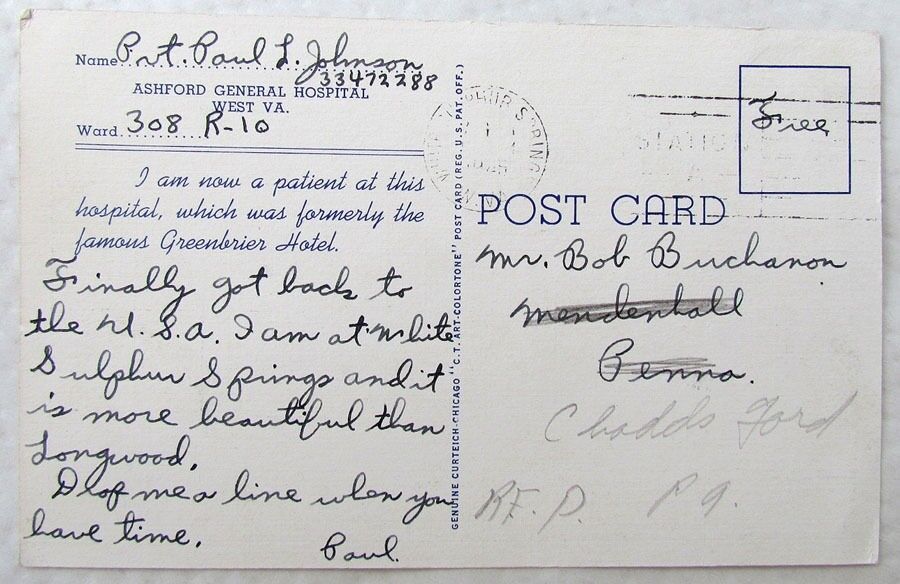 Name Pvt. Paul L. Johnson
33472288
ASHFORD GENERAL HOSPITAL
WEST VA.
Ward 308 R-10
I am now a patient at this
hospital, which was formerly the
famous Greenbrier Hotel.
Finally got back to
the U.S.A. I am at White
Sulphur Springs and it
is more beautiful than
Longwood.
Drop me a line when you
have time.
Paul.
GENUINE CURTEICH-CHICAGO "C.T. ART-COLORTONE" POST CARD (REG. U.S. PAT. OFF.)
SULPHUR SPRING
W.VA.
STATIO
Free
POST CARD
Mr. Bob Buchanon
Mendenhall
Penna.
Chadds Ford
R.F.D. Pa.